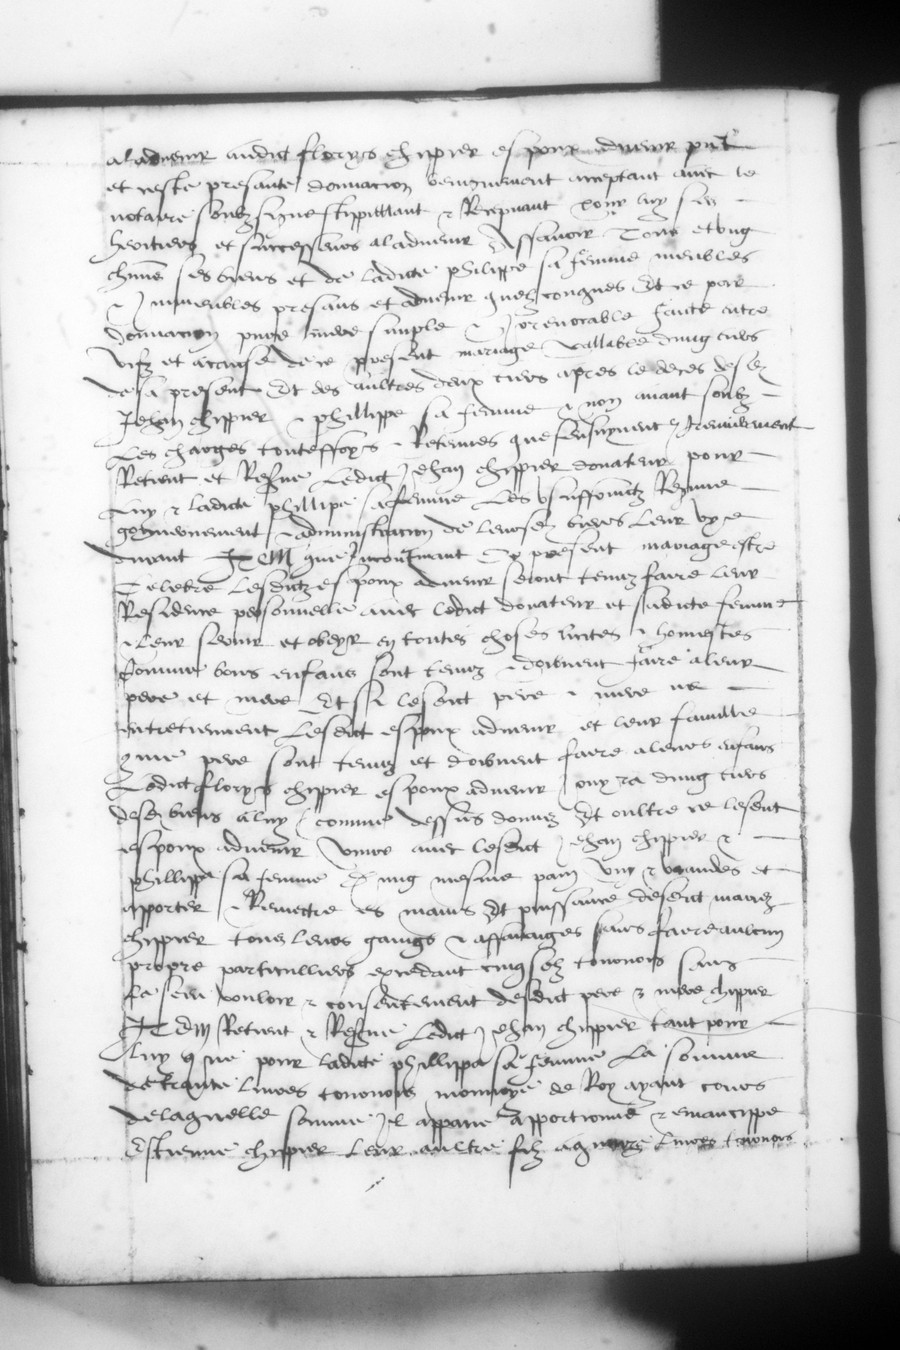 aladvenir audict florys chippier espoux advenir pnt
et ceste presante donnacion benignement acceptant avec le
notaire soubzsigne stippullant & Recepvant pour luy ses
heritiers et successeurs aladvenir Assavoir Tous et ung
chuns ses biens et de ladicte phillippe sa femme meubles
& Immeubles presans et advenir quelz conques Et ce par
donnacion pure mere simple & Irrevocable faicte entre
vifz et acause de ce present mariage vallable dung tiers
desa present Et des aultres deux tiers apres le deces desd
Jehan chippier & phillippe sa femme & non avant soubz
Les charges touteffoys & Retenues que sensuyvent & premierement
Retient et Reserve Ledict Jehan chippier donateur pour
Luy & ladicte phillipe safemme Les usuffruictz Regime
gouvernement & administracion de leursd biens Leur vye
durant ITEM que Incontinant Ce present mariage estre
Celebre Lesdictz espoux advenir seront tenuz faire leur
Residence personnelle avec ledict donateur et sadicte femme
& leur servir et obeyr en toutes choses licites & honnestes
Comme bons enfans sont tenuz & doibvent faire aleur
pere et mere Et si lesdict pere & mere ne
entretiennent Lesdict espoux advenir et leur famille
que pere sont tenuz et doibvent faire aleurs enfans
Ledict florys chippier espoux advenir Jouyra dung tiers
desd biens aluy comme dessus donnez Et oultre ce lesdict
espoux advenir vivre avec lesdict Jehan chippier &
phillippe sa femme dung mesme pain vin & viandes et
apporter & Remectre es mains Et puissance desdict mariez
chippier tous leurs gaings & affanaiges sans faire aulcun
propre particulliers excedant cinq solz tournois sans
le sceu vouloir & consentement desdict pere & mere chippier
ITEM Retient & Reserve Ledict Jehan chippier tant pour
luy que pour ladicte phillippe sa femme La somme
de trante livres tournois monnoye de Roy ayant cours
delaquelle somme Il appane apportionne & emancippe
Estienne chippier Leur aultre filz livres tournois